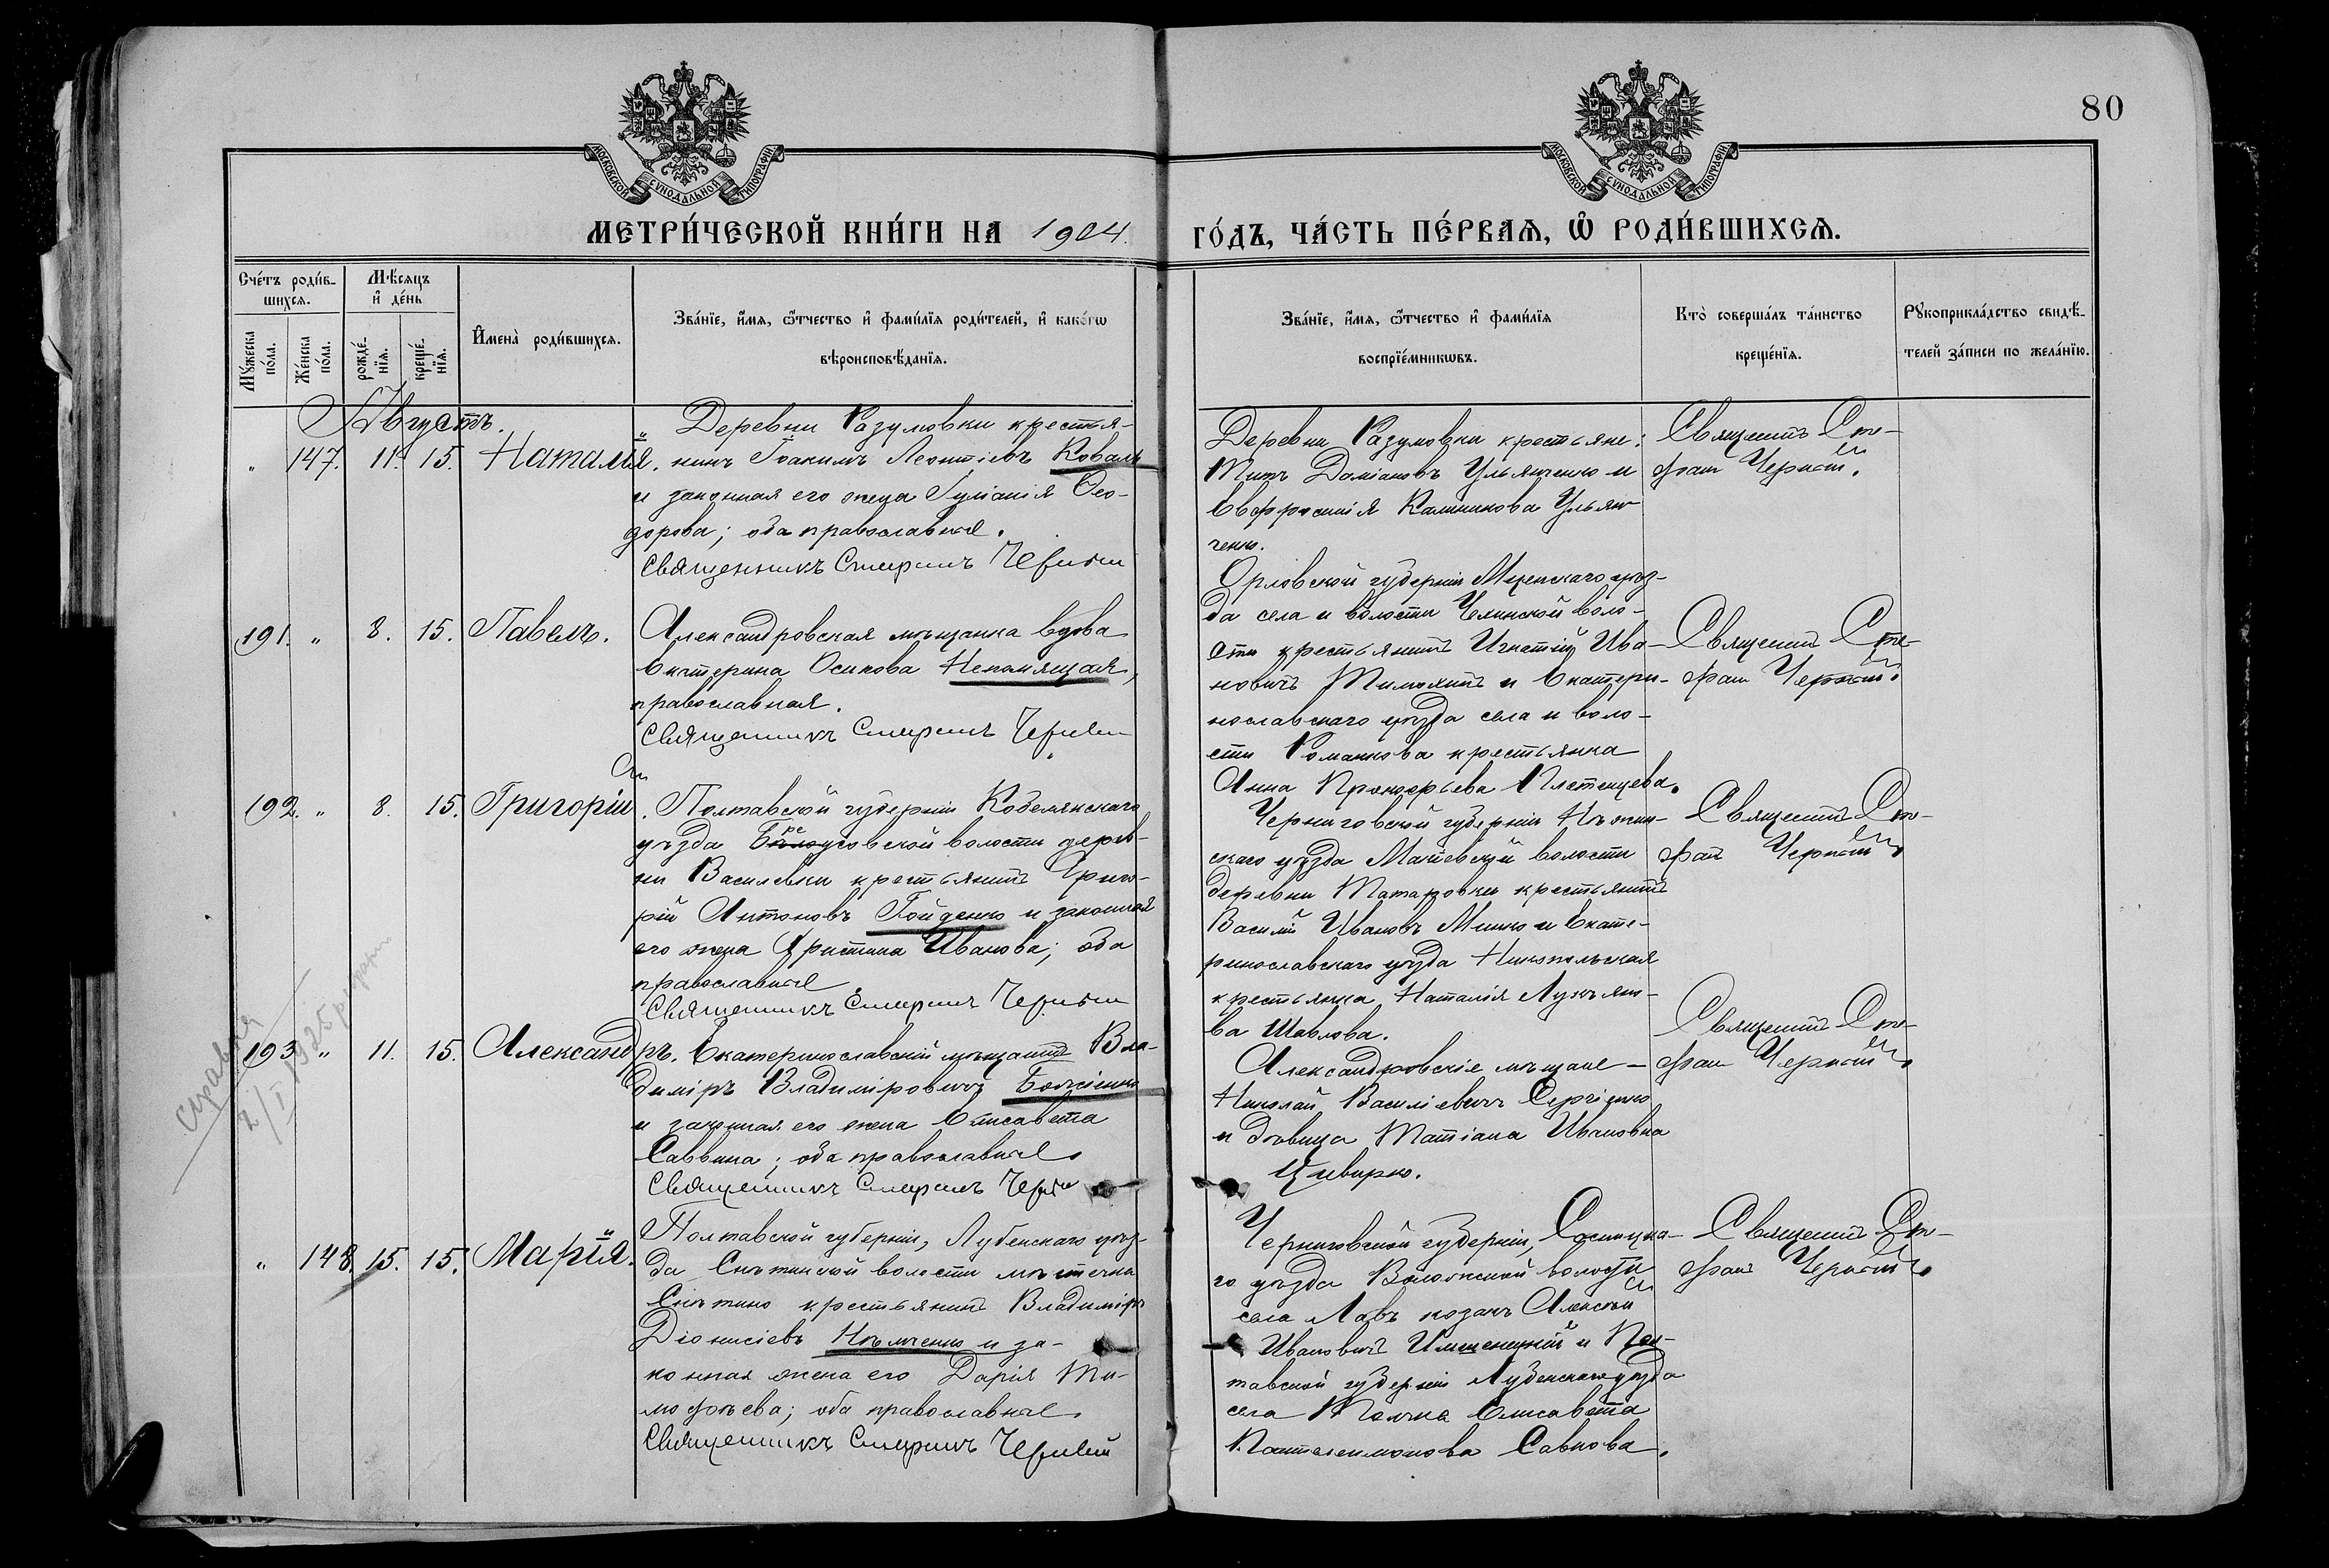 80
МОСКОВСКОЙ СѴНОДАЛЬНОЙ ТИПОГРАФІИ
МОСКОВСКОЙ СѴНОДАЛЬНОЙ ТИПОГРАФІИ
МЕТРИ́ЧЕСКОЙ КНИ́ГИ НА 1904.
ГО́ДЪ, ЧА́СТЬ ПЕ́РВАѦ, Ѽ РОДИ́ВШИХСѦ.
Сче́тъ роди́в-
шихсѧ.
Мѣ́сѧцъ
и҆ де́нь
Мꙋ́жеска
по́ла.
Же́нска
по́ла.
рожде́-
нїѧ.
креще́-
нїѧ.
И҆мена̀ роди́вшихсѧ.
Зва́нїе, и҆́мѧ, ѻ҆́тчество и҆ фами́лїѧ роди́телей, и҆ како́гѡ
вѣроисповѣ́данїѧ.
Зва́нїе, и҆́мѧ, ѻ҆́тчество и҆ фами́лїѧ
воспрїе́мникѡвъ.
Кто̀ соверша́лъ та́инство
креще́нїѧ.
Рꙋкоприкла́дство свидѣ́-
телей за́писи по жела́нїю.
Августъ.
" 147. 11. 15. Наталія.
Деревни Разумовки крестья-
нинъ Іоакимъ Леонтіевъ Коваль
и законная его жена Іуліанія Ѳео-
дорова; оба православные.
Священникъ Стефанъ Черный
Деревни Разумовки крестьяне:
Титъ Даміановъ Ульянченко и
Евфросинія Калиникова Ульян-
ченко.
Священникъ Сте-
фанъ Черный.
191. " 8. 15. Павелъ.
Александровская мѣщанка вдова
Екатерина Осипова Непомнящая,
православная.
Священникъ Стефанъ Черный
Орловской губерніи Мценскаго уѣз-
да села и волости воло-
сти крестьянинъ Игнатій Ива-
новичъ Тимохинъ и Екатери-
нославскаго уѣзда села и воло-
сти Романкова крестьянка
Анна Прокофьева Плетенцева.
Священникъ Сте-
фанъ Черный.
192. " 8. 15. Григорій.
Полтавской губерніи Кобелякскаго
уѣзда волости дерев-
ни Василевки крестьянинъ Григо-
рій Антоновъ Гойденко и законная
его жена Христина Иванова; оба
православные
Священникъ Стефанъ Черный
Черниговской губерніи Нѣжин-
скаго уѣзда волости
деревни Татаровки крестьянинъ
Василій Ивановъ Минко и Екате-
ринославскаго уѣзда Никопольская
крестьянка Наталія Лукьяно-
ва Шавлова.
Священникъ Сте-
фанъ Черный.
193. " 11. 15. Александръ.
Екатеринославскій мѣщанинъ Вла-
диміръ Владиміровичъ
и законная его жена Елисавета
Саввина; оба православные.
Священникъ Стефанъ Черный
Александровскіе мѣщане –
Николай Василіевичъ Сергіенко
и дѣвица Татіана Ивановна
Цивирко.
Священникъ Сте-
фанъ Черный.
справка
2/I 1925
" 148. 15. 15. Марія.
Полтавской губерніи, Лубенскаго уѣз-
да Снѣтинской волости мѣстечка
Снѣтино крестьянинъ Владиміръ
Діонисіевъ Нѣмченко и за-
конная жена его Дарія Ти-
мофѣева; оба православные.
Священникъ Стефанъ Черный
Черниговской губерніи, Сосницка-
го уѣзда волости
села козакъ Алексѣй
Ивановичъ и Пол-
тавской губерніи Лубенскаго уѣзда
села Елисавета
Пантелеимонова Савкова.
Священникъ Сте-
фанъ Черный.